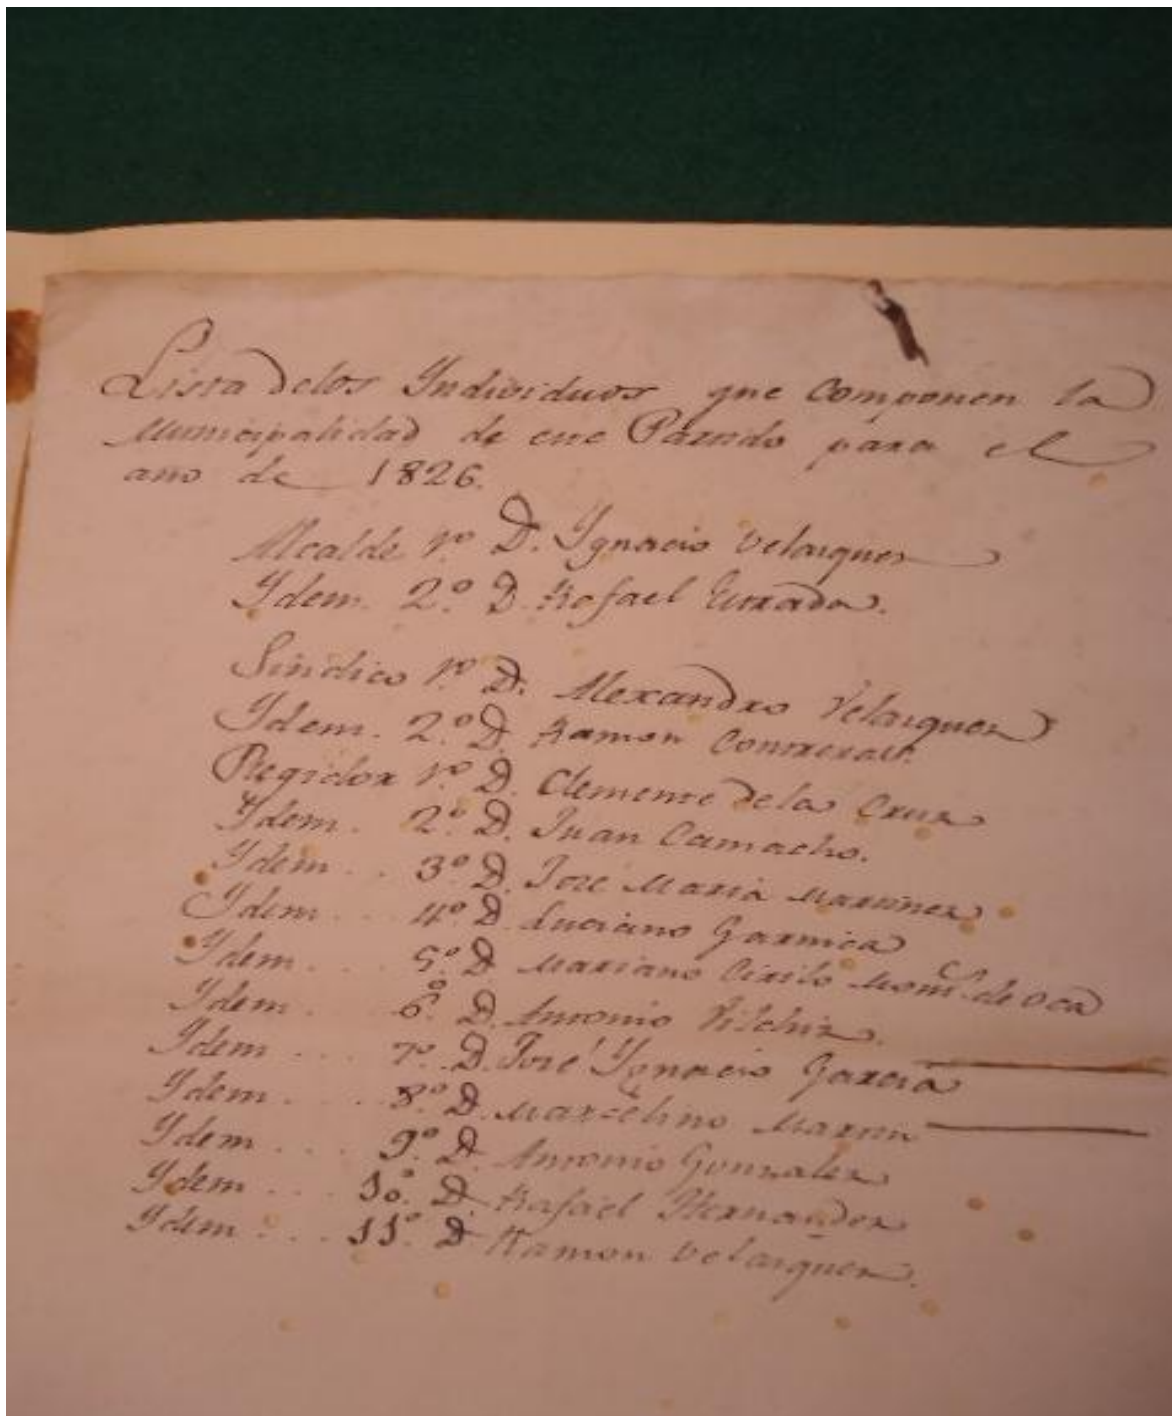 Lista delos Yndividuos que Componen la
Municipalidad de este Partido para el
año de 1826.
Alcalde 1º D. Ygnacio Velasquez
Ydem. 2º D. Rafael
Sindico 1º D. Alexandro Velasquez
Ydem. 2º D. Ramon Contreras.
Regidor 1º D. Clemente dela Cruz
Ydem. 2º D. Juan Camacho.
Ydem . . 3º D. José Maria Martinez
Ydem . . . 4º D. Luciano Garnica
Ydem . . . . 5º D. Mariano Cirilo Montˢ. de Oca
Ydem . . . 6º D. Antonio Vilchiz.
Ydem . . . . 7º D. José Ygnacio Garcia
Ydem . . . . 8º D. Marcelino Martin
Ydem . . . 9º D. Antonio Gonzalez
Ydem . . . 10º D. Rafael Hernandez
Ydem . . . 11º D. Ramon Velasquez.